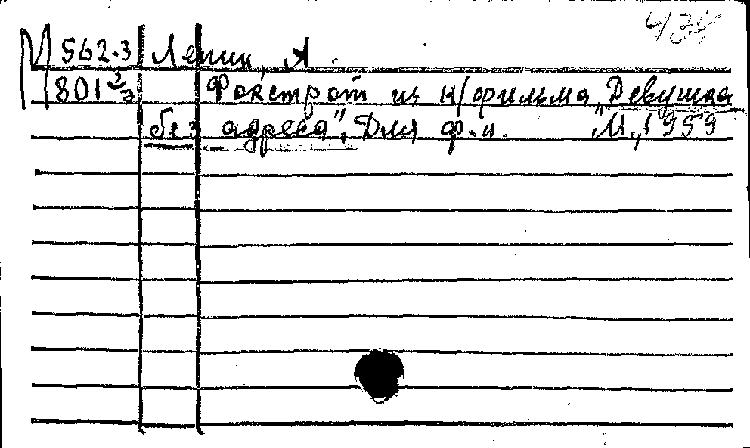 М 562.3 Лепин, А.
801 2/3 Фокстрот из к/фильма „Девушка
без адреса“, Для ф.-п. М., 1959